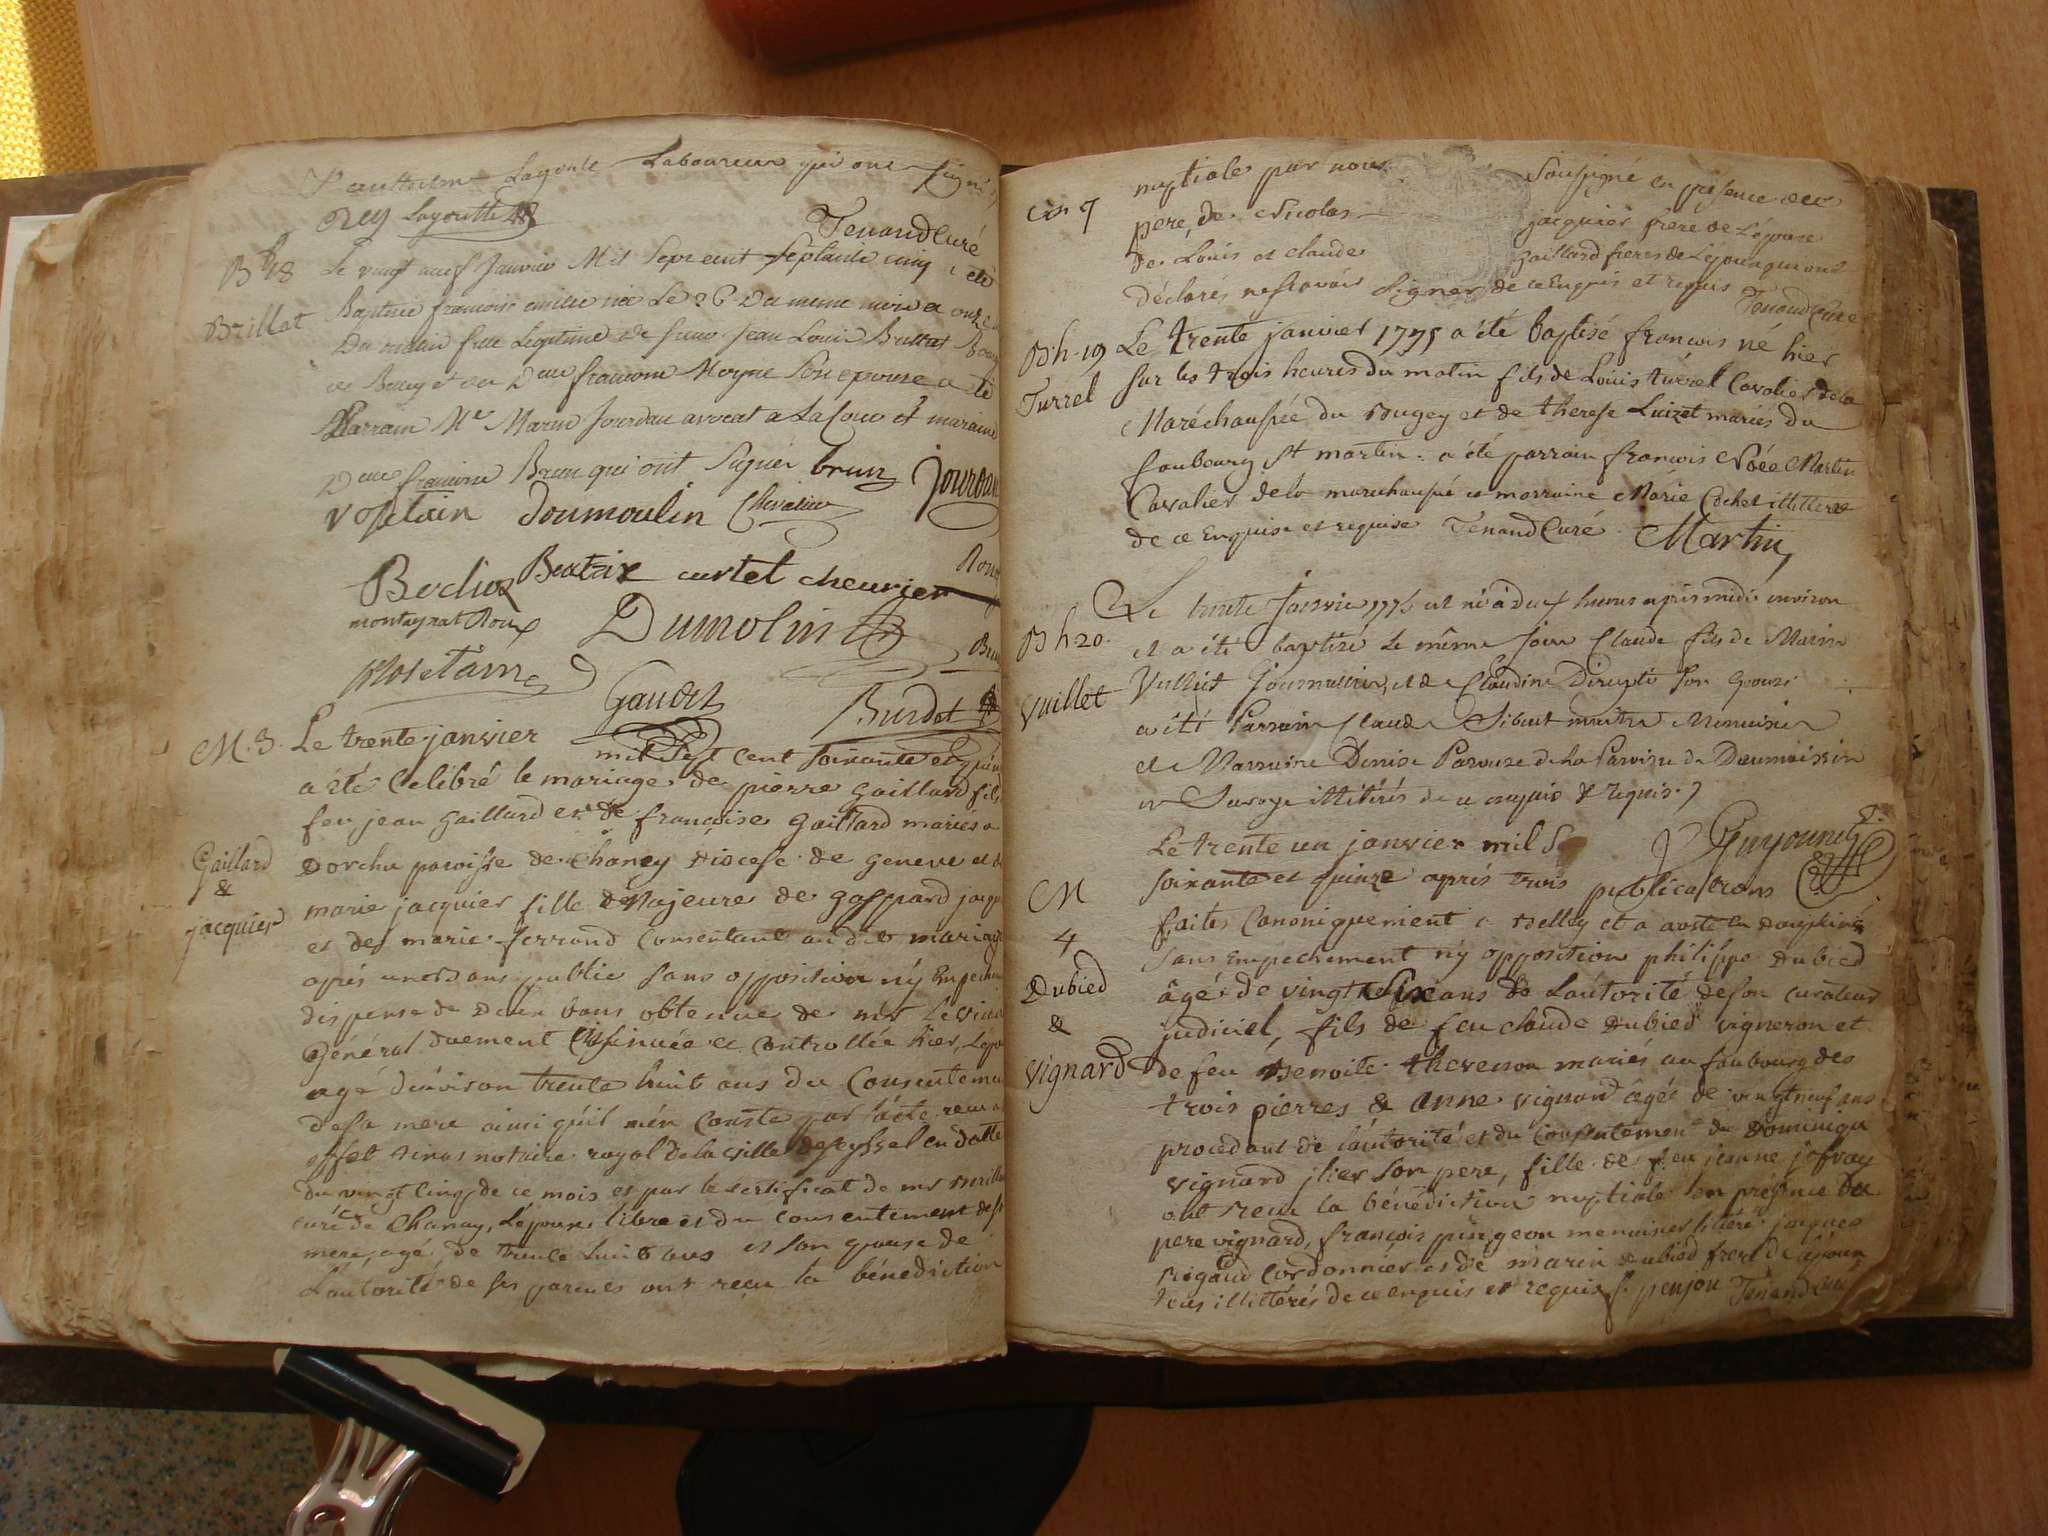 Laboureur qui ont signé
Rey Lagoutte
Tenand Curé
Bh 18
Brillat
Le vingt neuf Janvier Mil Sept cent Septante cinq a été
Baptisé francois né Le 26 du meme mois a onze
Du matin fils Legitime de Jean Louis Brillat
de Belley et de Dlle francoise Moyne Son epouse a été
Parrain Me Marin Jourdan avocat a La Cour et maraine
Dlle francoise Brun qui ont Signér brun Jourdan
vosetain Doumoulin Chevalier
Bochioz Beatrix curtet cheurier
montegrat Roux Dumolin
Mosetain
Gaudet Burdet
M. 3.
Gaillard
&
jacquier
Le trente janvier
mil sept cent soixante et quin
a été Celébré le mariage de pierre gaillard fils
feu jean gaillard et de françoise gaillard mariés a
Dorche paroisse de Chaney Diocese de geneve et de
marie jacquier fille Majeure de gaspard jacqu
et de marie ferrand Consentant au dit mariage
après un bans publié sans opposition n'y Empeche
dispense de Deux bans obtenue de mr le vicai
général duement insinuée et Controllée hier, L'épo
agé d'environ trente huit ans du Consenteme
de sa mere ainsi qu'il m'en Conste par l'acte recu
effet notaire royal de la ville de seyssel en datte
du vingt Cinq de ce mois et par le certificat de mr
curé de Chanay, L'epoux libre et du consentement de sa
mere, agé de trente huit ans et son epouse de
L'autorité de ses parens ont recu la bénédiction
nuptiale par nous Soussigné en presence de
pere, de Nicolas jacquier frere de L'épouse
de Louis et claude gaillard freres de L'époux qui ont
déclarés ne sçavoir Signer de ce Enquis et requis Tenand Curé
Bh. 19
Turrel
Le trente janvier 1775 a été baptisé francois né hier
sur les trois heures du matin fils de Louis turrel Cavalier de la
Maréchaussée du Bugey et de therese Luizet mariés du
faubourg St martin. a été parrain francois Noée Martin
Cavalier de la marechaussé et marraine Marie Cochet illitterée
de ce Enquise et requise Tenand Curé Martin
Bh 20.
Vuillet
Le trente Janvier 1775 est né à deux heures après midi environ
et a été baptisé le même jour Claude fils de Marin
Vulliet journalier, et de Claudine son epouse
a été Parrain Claude Sibuet maitre Menuisier
et Marraine Denise Parouze de la Paroisse de Doumoissin
en Savoye illitérés de ce enquis & requis.
Guyounet
M
4
Dubied
&
vignard
Le trente un janvier mil Se
soixante et quinze aprés trois publications
faites Canoniquement a Belley et a aoste en dauphiné
sans Empechement n'y opposition philippe Dubied
âgé de vingt Six ans de L'autorité de son curateur
judiciel, fils de feu claude Dubied vigneron et
de feu Benoite thevenon mariés au faubourg des
trois pierres & anne vignard âgée de vingt neuf ans
procedant de l'autorité et du Consentement de Dominique
vignard son pere, fille de feu jeanne jofray
ont recu la bénédiction nuptiale en presence du
pere vignard, françois pingeon menuisier jacques
Rigaud Cordonnier et de marin Dubied frere de L'époux
tous illittérés de ce enquis et requis penjon Tenand curé